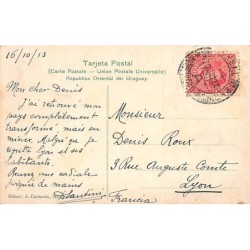 16/10/13
Tarjeta Postal
(Carte Postale - Union Postale Universelle)
Republica Oriental del Uruguay.
Mon cher Denis
J'ai retrouvé mon
pays complètement
transformé, mais en
mieux. Malgré ça je
regrette Lyon et ses
habitants.
Recevez une cordiale
poignée de mains
Monsieur
Denis Roux
3 Rue Auguste Comte
Lyon
Francia
Editor: A. Carluccio,